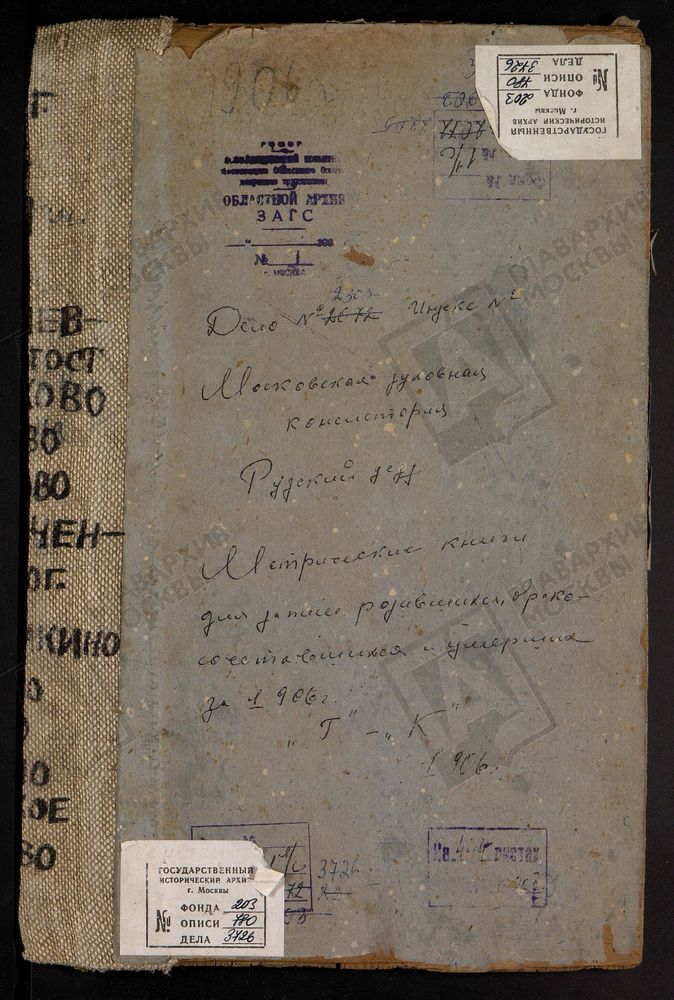 1906
ГОСУДАРСТВЕННЫЙ
ИСТОРИЧЕСКИЙ АРХИВ
г. Москвы
№ ФОНДА 203
ОПИСИ 780
ДЕЛА 3726
ОБЛАСТНОЙ АРХИВ
ЗАГС
№ 1
г. МОСКВА
2303
Дело № 2072 Индекс №
Московская духовная
консистория
Рузский уезд
Метрические книги
для записи родившихся, брако-
сочетавшихся и умерших
за 1906 г.
"Г" - "К"
1906 г.
ЕВ-
ТОСТ
КОВО
ВО
ВО
ЧЕН-
ОГ.
КИНО
О
О
ОЕ
ВО
3726
На листах
ГОСУДАРСТВЕННЫЙ
ИСТОРИЧЕСКИЙ АРХИ
г. Москвы
№ ФОНДА 203
ОПИСИ 780
ДЕЛА 3726
ГЛАВАРХИВ
МОСКВЫ